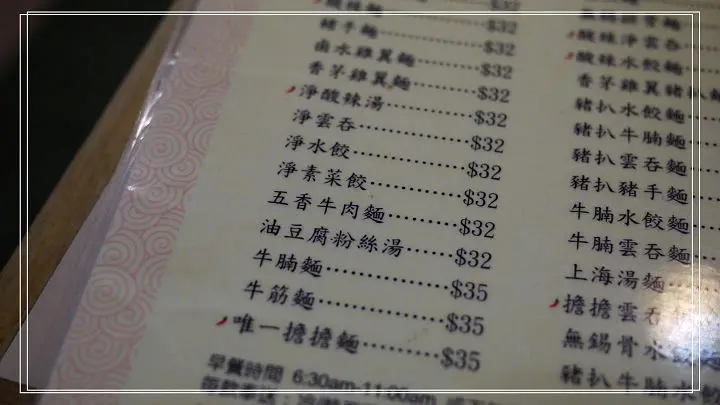 酸辣麵 $32
豬手麵 $32
鹵水雞翼麵 $32
香茅雞翼麵 $32
淨酸辣湯 $32
淨雲吞 $32
淨水餃 $32
淨素菜餃 $32
五香牛肉麵 $32
油豆腐粉絲湯 $32
牛腩麵 $35
牛筋麵 $35
唯一擔擔麵 $35
早餐時間 6:30am-11:00am
酸辣淨雲吞
酸辣水餃麵
香茅雞翼豬扒麵
豬扒水餃麵
豬扒牛腩麵
豬扒雲吞麵
豬扒豬手麵
牛腩水餃麵
牛腩雲吞麵
上海湯麵
擔擔雲吞
無錫骨水餃麵
豬扒牛腩水餃